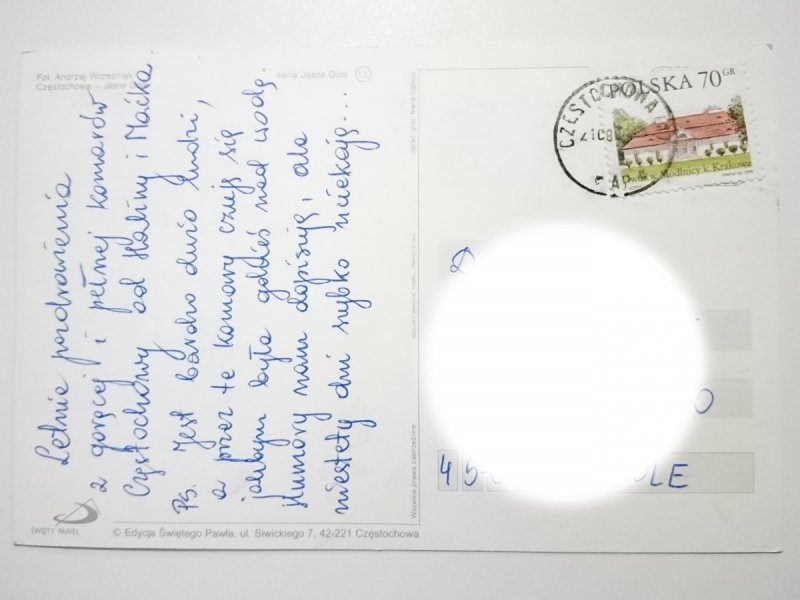 Fot. Andrzej Wrześniak
Częstochowa – Jasna
seria Jasna Góra 13
Letnie pozdrowienia
z gorącej i pełnej komarów
Częstochowy od Haliny i Maćka
Ps. Jest bardzo dużo ludzi,
a przez te komary czuję się
jakbym była gdzieś nad wodą.
Humory nam dopisują, ale
niestety dni szybko uciekają...
ŚWIĘTY PAWEŁ
© Edycja Świętego Pawła, ul. Siwickiego 7, 42-221 Częstochowa
Wszelkie prawa zastrzeżone
oprac. graf. Maria
POLSKA 70 GR
Dwór w Modlnicy k. Krakowa
CZĘSTOCHOWA
O
45
OLE